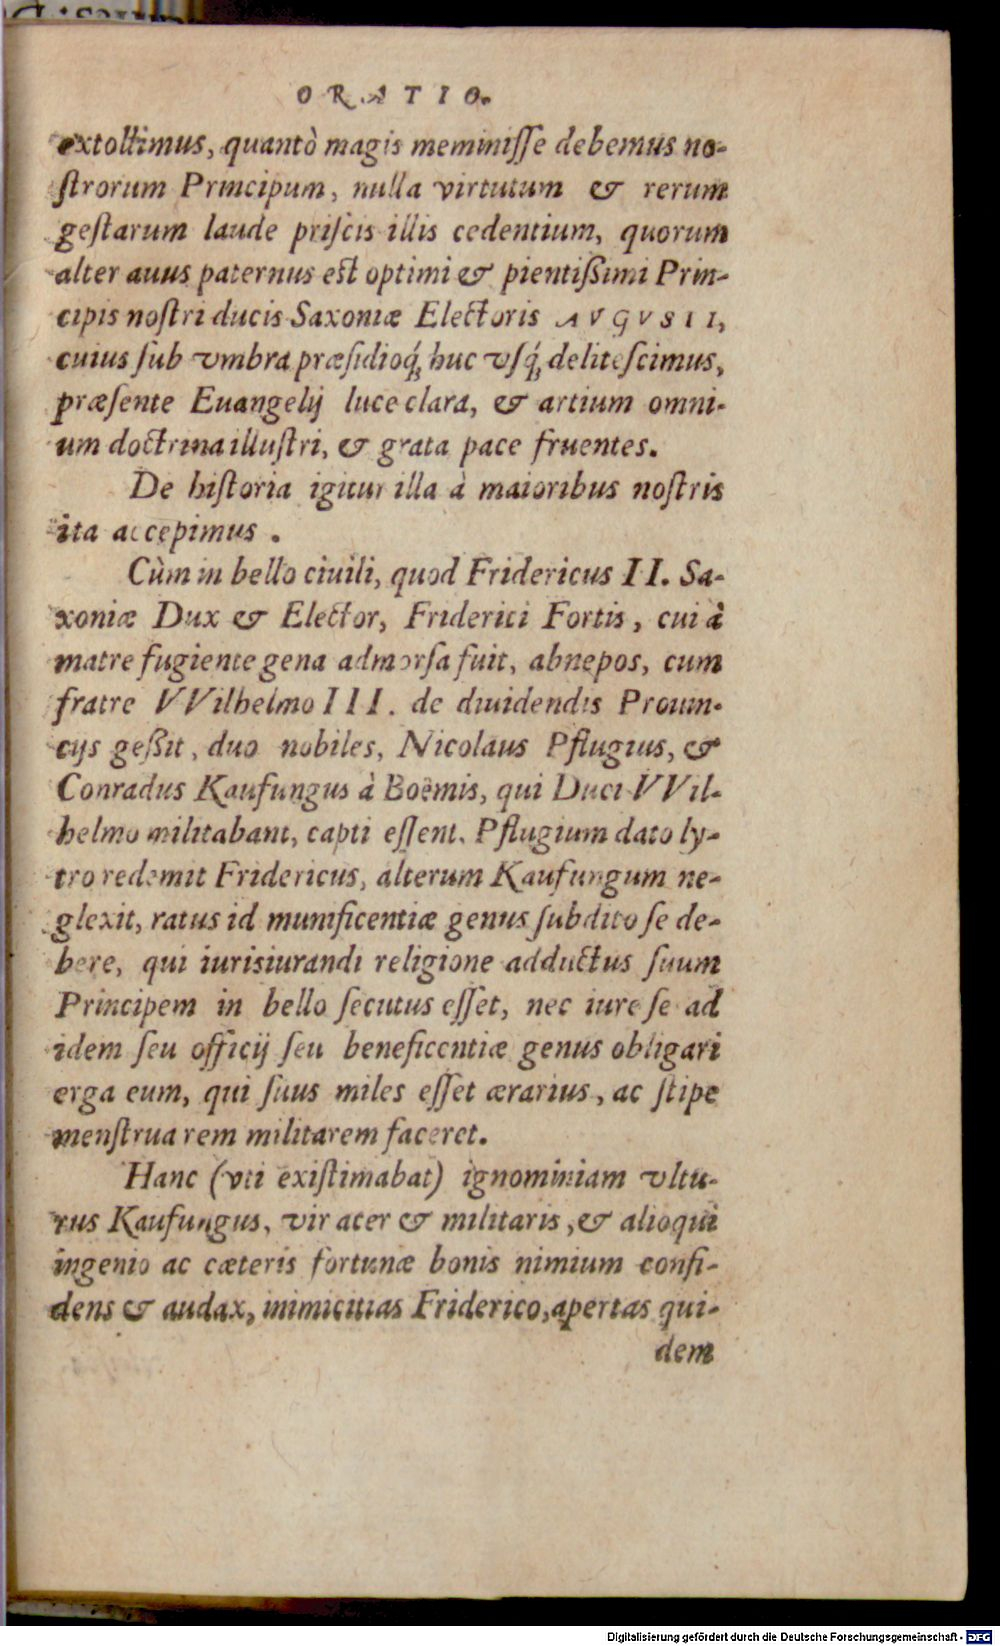 ORATIO.
extollimus, quantò magis meminiſſe debemus no-
ſtrorum Principum, nulla virtutum & rerum
geſtarum laude priſcis illis cedentium, quorum
alter auus paternus est optimi & pientißimi Prin-
cipis noſtri ducis Saxoniæ Electoris AVGVSII,
cuius ſub vmbra præſidioq́; huc vſq́; deliteſcimus,
præſente Euangelij luce clara, & artium omni-
um doctrina illuſtri, & grata pace fruentes.
De hiſtoria igitur illa à maioribus noſtris
ita accepimus .
Cùm in bello ciuili, quod Fridericus II. Sa-
xoniæ Dux & Elector, Friderici Fortis, cui à
matre fugiente gena admorſa fuit, abnepos, cum
fratre VVilhelmo III. de diuidendis Prouin-
cijs geßit, duo nobiles, Nicolaus Pflugius, &
Conradus Kaufungus à Boëmis, qui Duci VVil-
helmo militabant, capti eſſent. Pflugium dato ly-
tro redemit Fridericus, alterum Kaufungum ne-
glexit, ratus id munificentiæ genus ſubdito ſe de-
bere, qui iurisiurandi religione adductus ſuum
Principem in bello ſecutus eſſet, nec iure ſe ad
idem ſeu officij ſeu beneficentiæ genus obligari
erga eum, qui ſuus miles eſſet ærarius, ac ſtipe
menſtrua rem militarem faceret.
Hanc (vti exiſtimabat) ignominiam vltu-
rus Kaufungus, vir acer & militaris, & alioqui
ingenio ac cæteris fortunæ bonis nimium confi-
dens & audax, inimicitias Friderico, apertas qui-
dem
Digitalisierung gefördert durch die Deutsche Forschungsgemeinschaft - DFG